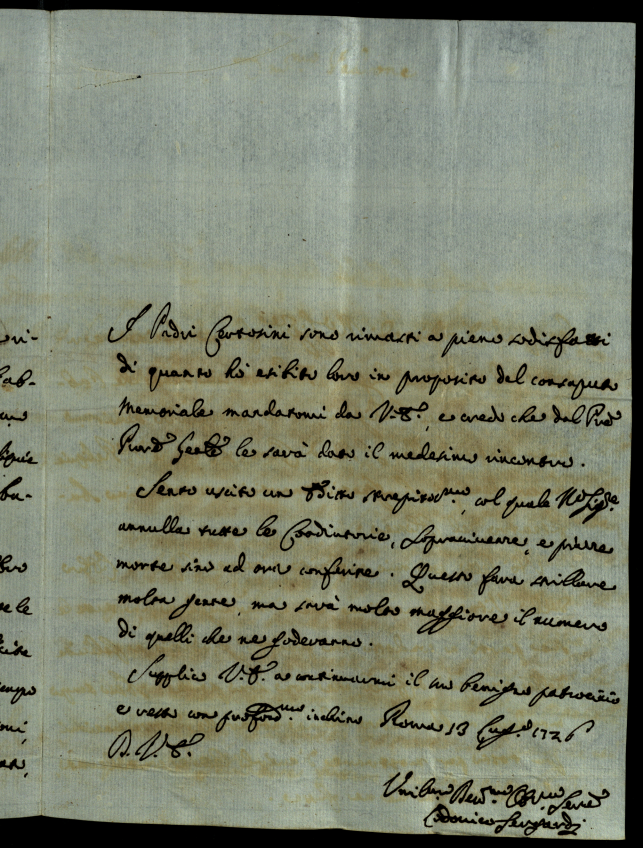 ri-
ab-
bu-
I Padri Certosini sono rimasti a pieno sodisfatti
di quanto hò esibito loro in proposito del consaputo
Memoriale mandatomi da V.E., e credo che dal Pred.e
le sarà dato il medesimo rincontro.
Sento uscito un Editto strepitos.mo, col quale N.o Sig.e
annulla tutte le Coadiutorie, Sopravivenze, e prime
morte sino ad ora conferite. Questo farà strillare
molta gente, ma sarà molto maggiore il numero
di quelli che ne godevanno.
Supplico V.E. a continuarmi il suo benigno patrocinio
e resto con profond.mo inchino Roma 13 1726
D. V.E.
Umiliss.mo Dev.mo Obl.mo Serv.e
Lodovico Sergardi